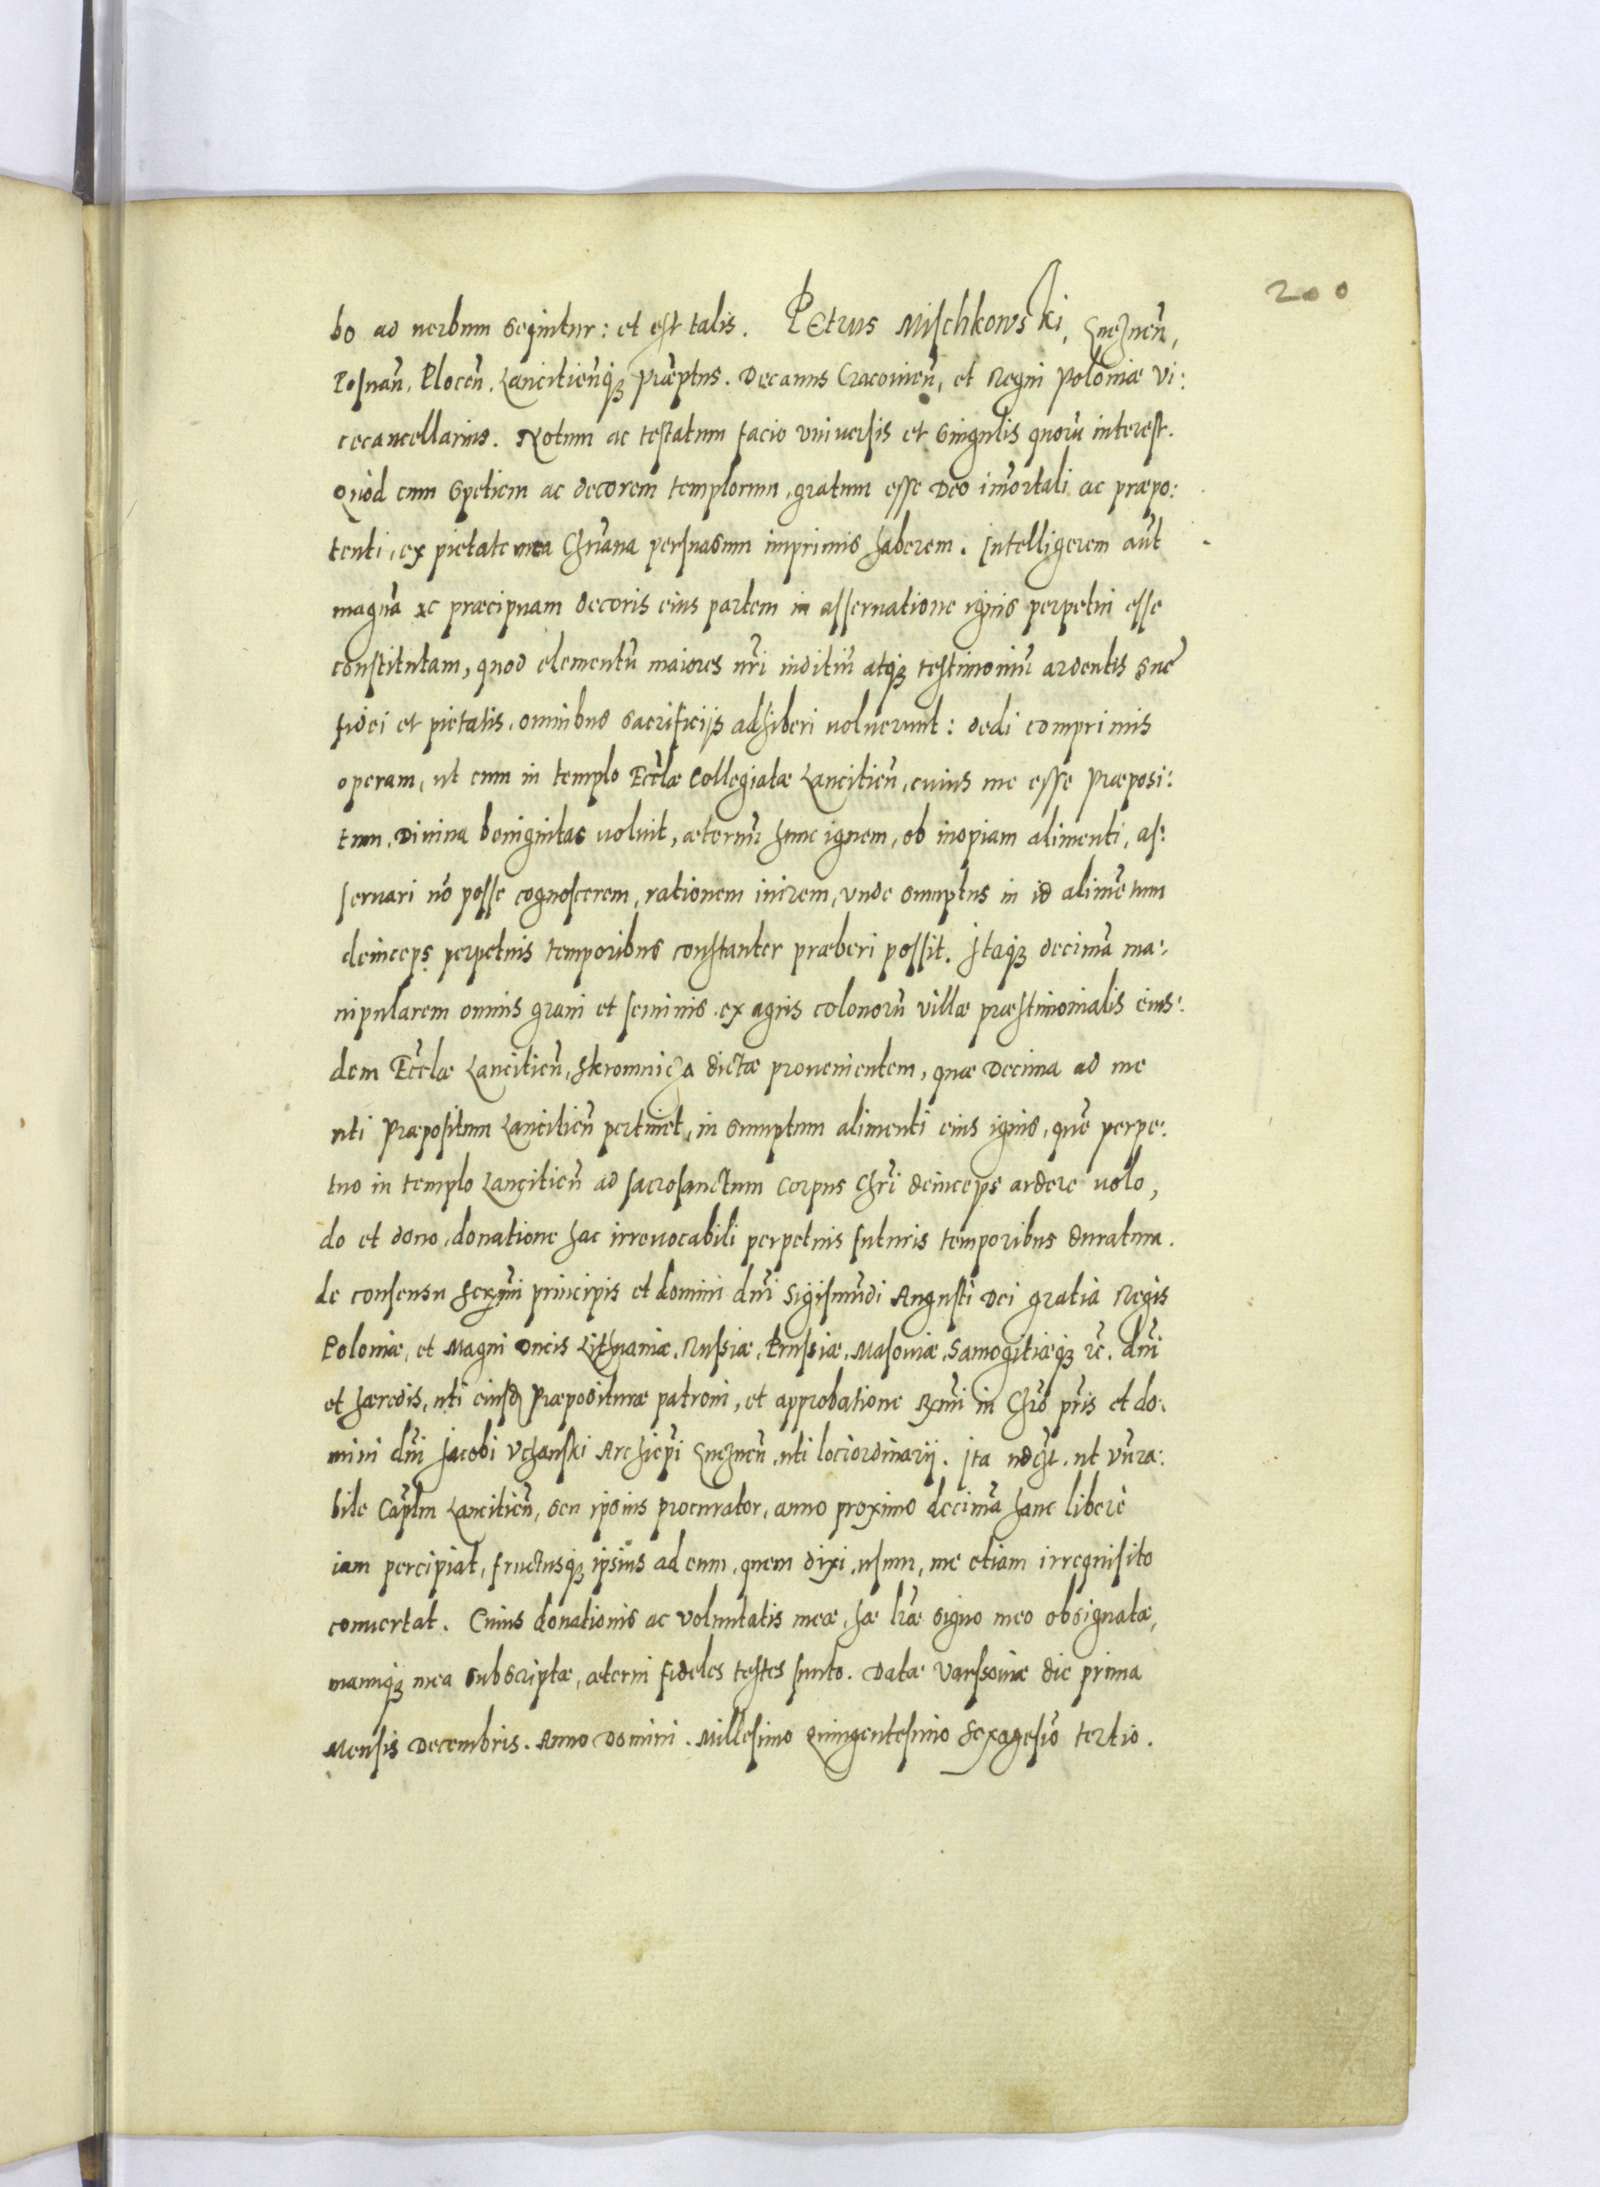 200
bo ad uerbum sequitur: et est talis. PEtrus Mischkowski, Gneznen̄,
Posnan̄, Plocen̄, Lancitien̄qꝫ Præptus. Decanus Cracouien̄, et Regni Poloniæ Vi:
cecancellarius. Notum ac testatum facio vniuersis et singulis quorū interest.
Quòd cum spetiem ac decorem templorum, gratum esse Deo im̄ortali ac præpo:
tenti, ex pietate mea Chr̄iana persuasum imprimis haberem. Intelligerem aūt
magnā ac præcipuam decoris eius partem in asseruatione ignis perpetui esse
constitutam, quod elementū maiores nr̄i inditiū atqꝫ testimoniū ardentis suę
fidei et pietatis, omnibus sacrificijs adhiberi uoluerunt: dedi comprimis
operam, ut cum in templo Eccl̄æ Collegiatæ Lancitien̄, cuius me esse Præposi:
tum, Diuina benignitas uoluit, æternū hunc ignem, ob inopiam alimenti, as:
seruari nō posse cognoscerem, rationem inirem, vnde sumptus in id alimētum
deinceps perpetuis temporibus constanter præberi possit. Itaqꝫ decimā ma:
nipularem omnis grani et seminis ex agris colonorū villæ præstimonialis eius:
dem Eccl̄æ Lancitien̄, Skromnicza dictæ prouenientem, quæ Decima ad me
uti Præpositum Lancitien̄ pertinet, in sumptum alimenti eius ignis, quē perpe:
tuo in templo Lancitien̄ ad sacrosanctum Corpus Chr̄i deinceps ardere uolo,
do et dono, donatione hac irreuocabili perpetuis futuris temporibus duratura.
de consensu Serm̄i principis et domini dn̄i Sigismūdi Augusti Dei gratia Regis
Poloniæ, et Magni Ducis Lithuaniæ, Russiæ, Prussiæ, Masouiæ, Samogitiæqꝫ ꝛc̄. dn̄i
et hæredis, uti eiusd Præpositurę patroni, et approbatione Rm̄i in Chr̄o pr̄is et do:
mini dn̄i Jacobi Vchanski Archiep̄i Gneznen̄, uti lociordinarij. Ita ut vn̄ra:
bile Cap̄lm Lancitien̄, seu ipsius procurator, anno proximo decimā hanc liberè
iam percipiat, fructusqꝫ ipsius ad eum, quem dixi, usum, me etiam irrequisito
conuertat. Cuius donationis ac voluntatis meæ, hæ lr̄æ signo meo obsignatæ,
manuqꝫ mea subscriptæ, æterni fideles testes sunto. Datæ Varssouiæ die prima
Mensis Decembris. Anno Domini. Millesimo Quingentesimo Sexagesiō tertio.